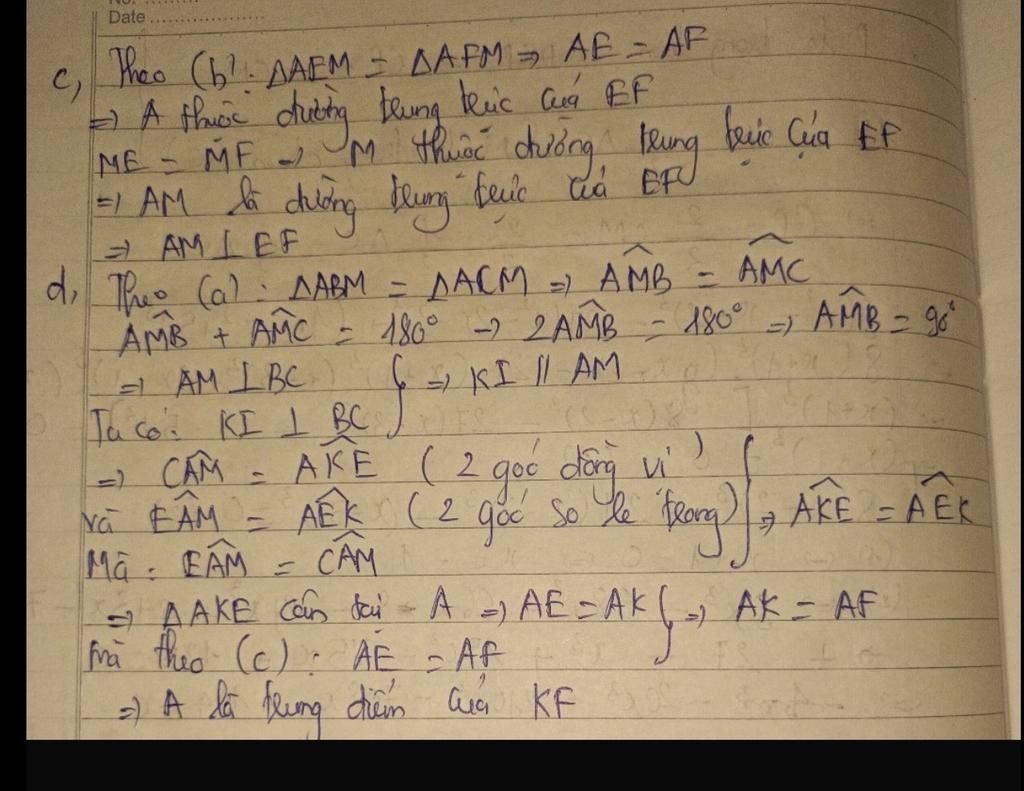 No. ........
Date ....................
c, Theo (b): ΔAEM = ΔAFM ⇒ AE = AF
⇒ A thuộc đường trung trực của EF
ME = MF → M thuộc đường trung trực của EF
⇒ AM là đường trung trực của EF
⇒ AM ⊥ EF
d, Theo (a): ΔABM = ΔACM ⇒ AM̂B = AM̂C
AM̂B + AM̂C = 180° → 2AM̂B = 180° ⇒ AM̂B = 90°
⇒ AM ⊥ BC } ⇒ KI // AM
Ta có: KI ⊥ BC
⇒ CÂM = AK̂E (2 góc đồng vị)
và EÂM = AÊK (2 góc so le trong) } ⇒ AK̂E = AÊK
Mà: EÂM = CÂM
⇒ ΔAKE cân tại A ⇒ AE = AK } ⇒ AK = AF
mà theo (c): AE = AF
⇒ A là trung điểm của KF